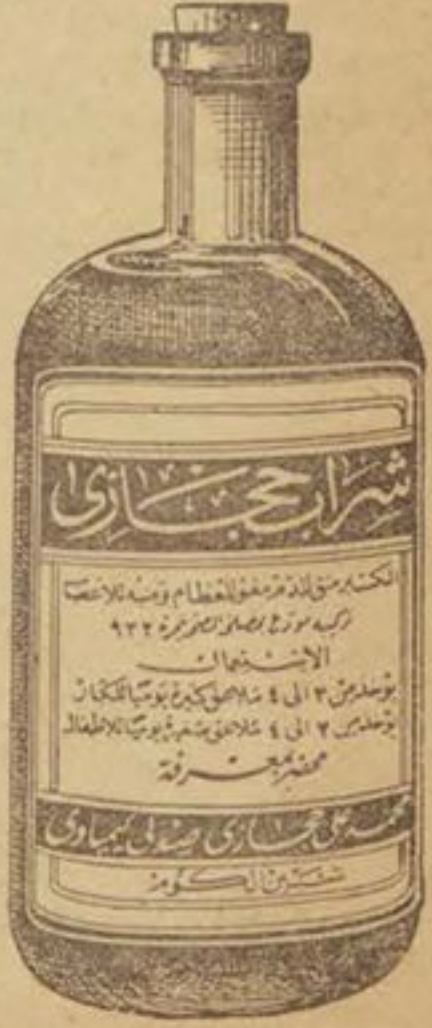 شراب حجازى
اكسير منق للدم مقو للعظام ومنبه للاعصاب
تركيبه مودع بمصلحة نمرة ٩٢٢
الاستعمال
يوخد من ٣ الى ٤ ملاعق كبيرة يوميا للكبار
يوخد من ٢ الى ٤ ملاعق صغيرة يوميا للاطفال
محضر بمعرفة
محمد على حجازى صيدلى كيماوى
شبين الكوم